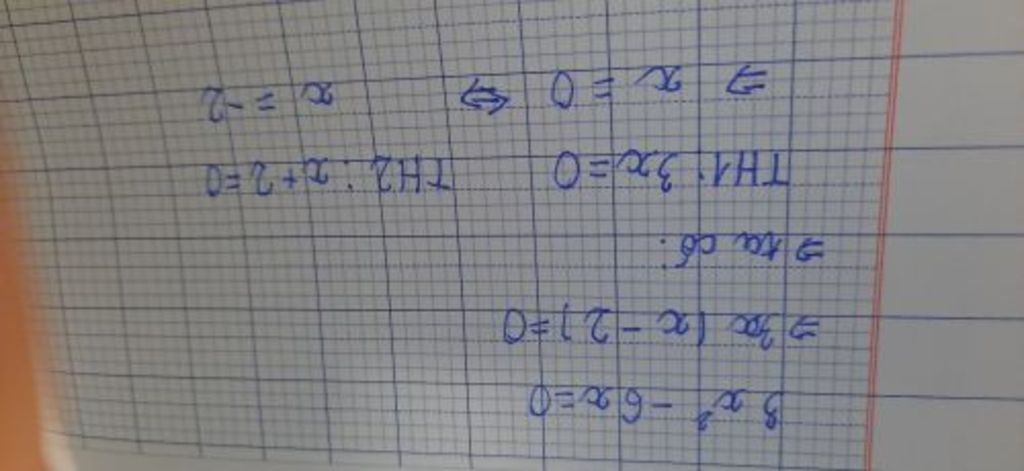 3x² - 6x = 0
⇒ 3x (x - 2) = 0
⇒ ta có:
TH1: 3x = 0 TH2: x + 2 = 0
⇒ x = 0 ⇔ x = -2